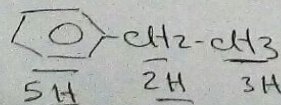 -CH2-CH3
5H 2H 3H